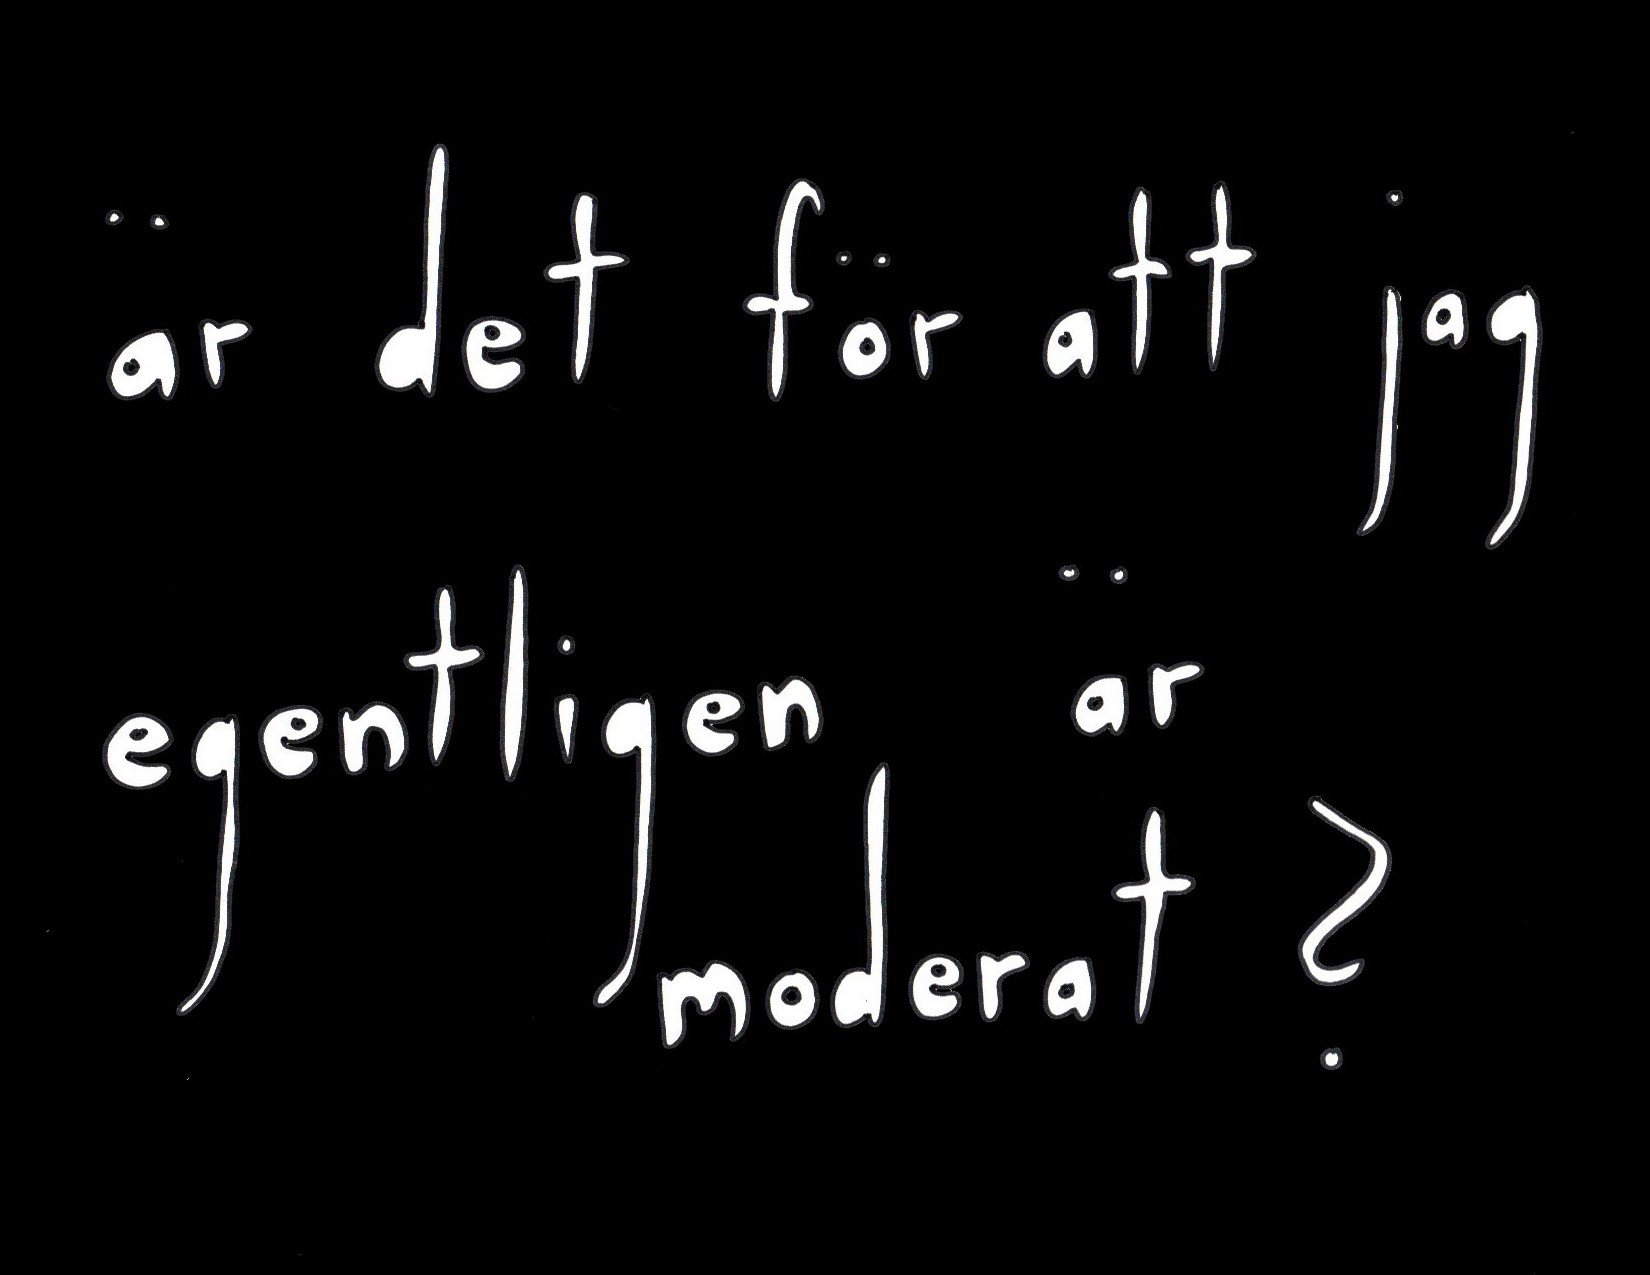 är det för att jag
egentligen är
moderat?